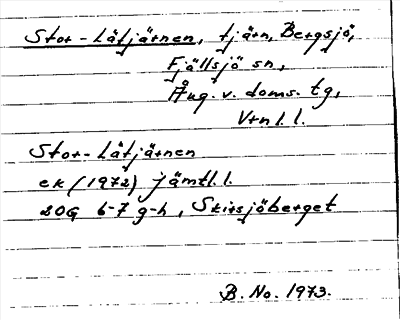 Stor-Låtjärnen, tjärn, Bergsjö,
Fjällsjö sn,
Ång. v. doms. tg,
Vrnl. l.
Stor-Låtjärnen
ek (1972) jämtl. l.
20G 6-7 g-h, Skirsjöberget
B. No. 1973.